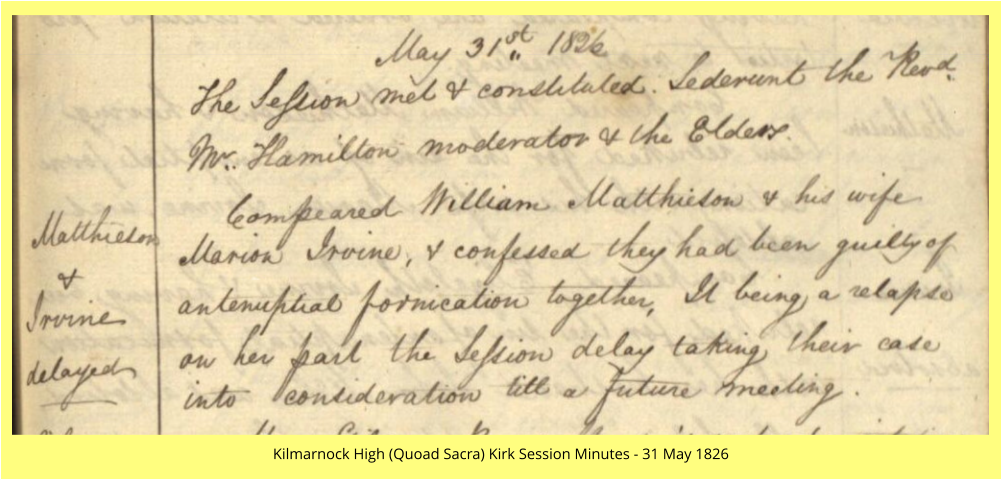 May 31st 1826
The Session met & constituted. Sederunt the Revd.
Mr. Hamilton moderator & the Elders.
Compeared William Matthieson & his wife
Marion Irvine, & confessed they had been guilty of
antenuptial fornication together, It being a relapse
on her part the Session delay taking their case
into consideration till a future meeting.
Matthieson
&
Irvine
delayed
Kilmarnock High (Quoad Sacra) Kirk Session Minutes - 31 May 1826